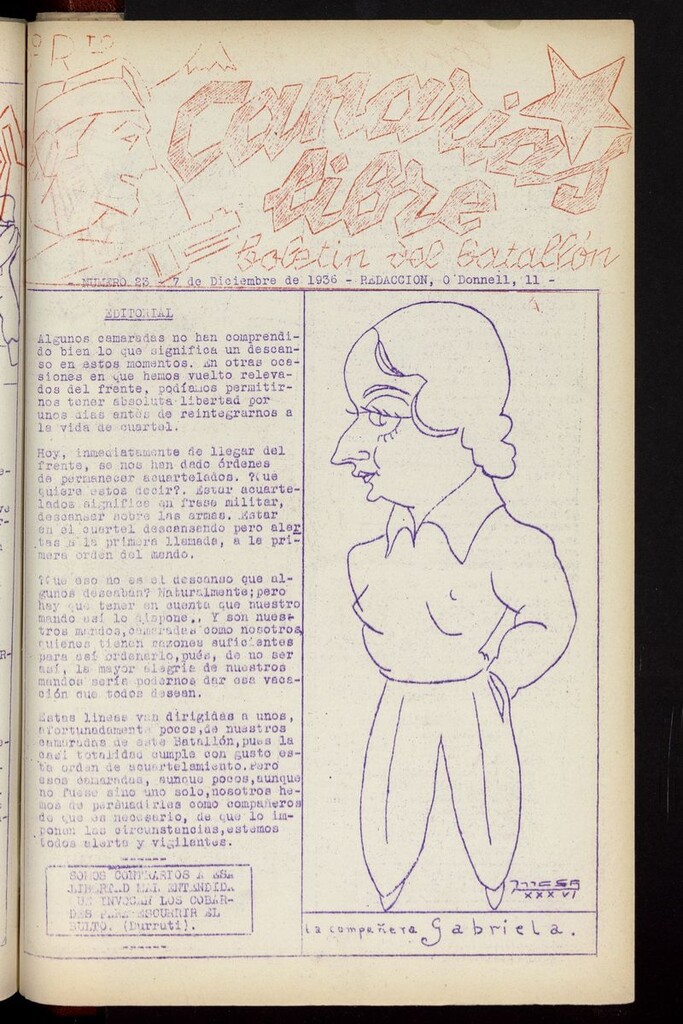 Canarias
libre
boletin del batallón
- NUMERO 23 - 7 de Diciembre de 1936 - REDACCION, O'Donnell, 11 -
EDITORIAL
Algunos camaradas no han comprendi-
do bien lo que significa un descan-
so en estos momentos. En otras oca-
siones en que hemos vuelto releva-
dos del frente, podíamos permitir-
nos tener absoluta libertad por
unos días antes de reintegrarnos a
la vida de cuartel.
Hoy, inmediatamente de llegar del
frente, se nos han dado órdenes
de permanecer acuartelados. ?Que
quiere estos decir?. Estar acuarte-
lados significa en frase militar,
descansar sobre las armas. Estar
en el cuartel descansando pero aler
tas a la primera llamada, a le pri-
mera orden del mando.
?Que eso no es el descanso que al-
gunos deseaban? Naturalmente;pero
hay que tener en cuenta que nuestro
mando así lo dispone.. Y son nues-
tros mandos,camaradas como nosotros,
quienes tienen razones suficientes
para así ordenarlo,pués, de no ser
así, la mayor alegria de nuestros
mandos sería podernos dar esa vaca-
ción que todos desean.
Estas lineas van dirigidas a unos,
afortunadamente pocos,de nuestros
camaradas de este Batallón,pues la
casi totalidad cumple con gusto es-
ta orden de acuartelamiento.Pero
esos camaradas, aunque pocos,aunque
no fuese sino uno solo,nosotros he-
mos de persuadirles como compañeros
de que es necesario, de que lo im-
ponen las circunstancias,estemos
todos alerta y vigilantes.
SOMOS CONTRARIOS A ESA
LIBERTAD MAL ENTENDIDA
QUE INVOCAN LOS COBAR-
DES PARA ESCURRIR EL
BULTO. (Durruti).
MESA
XXXVI
La compañera Gabriela.